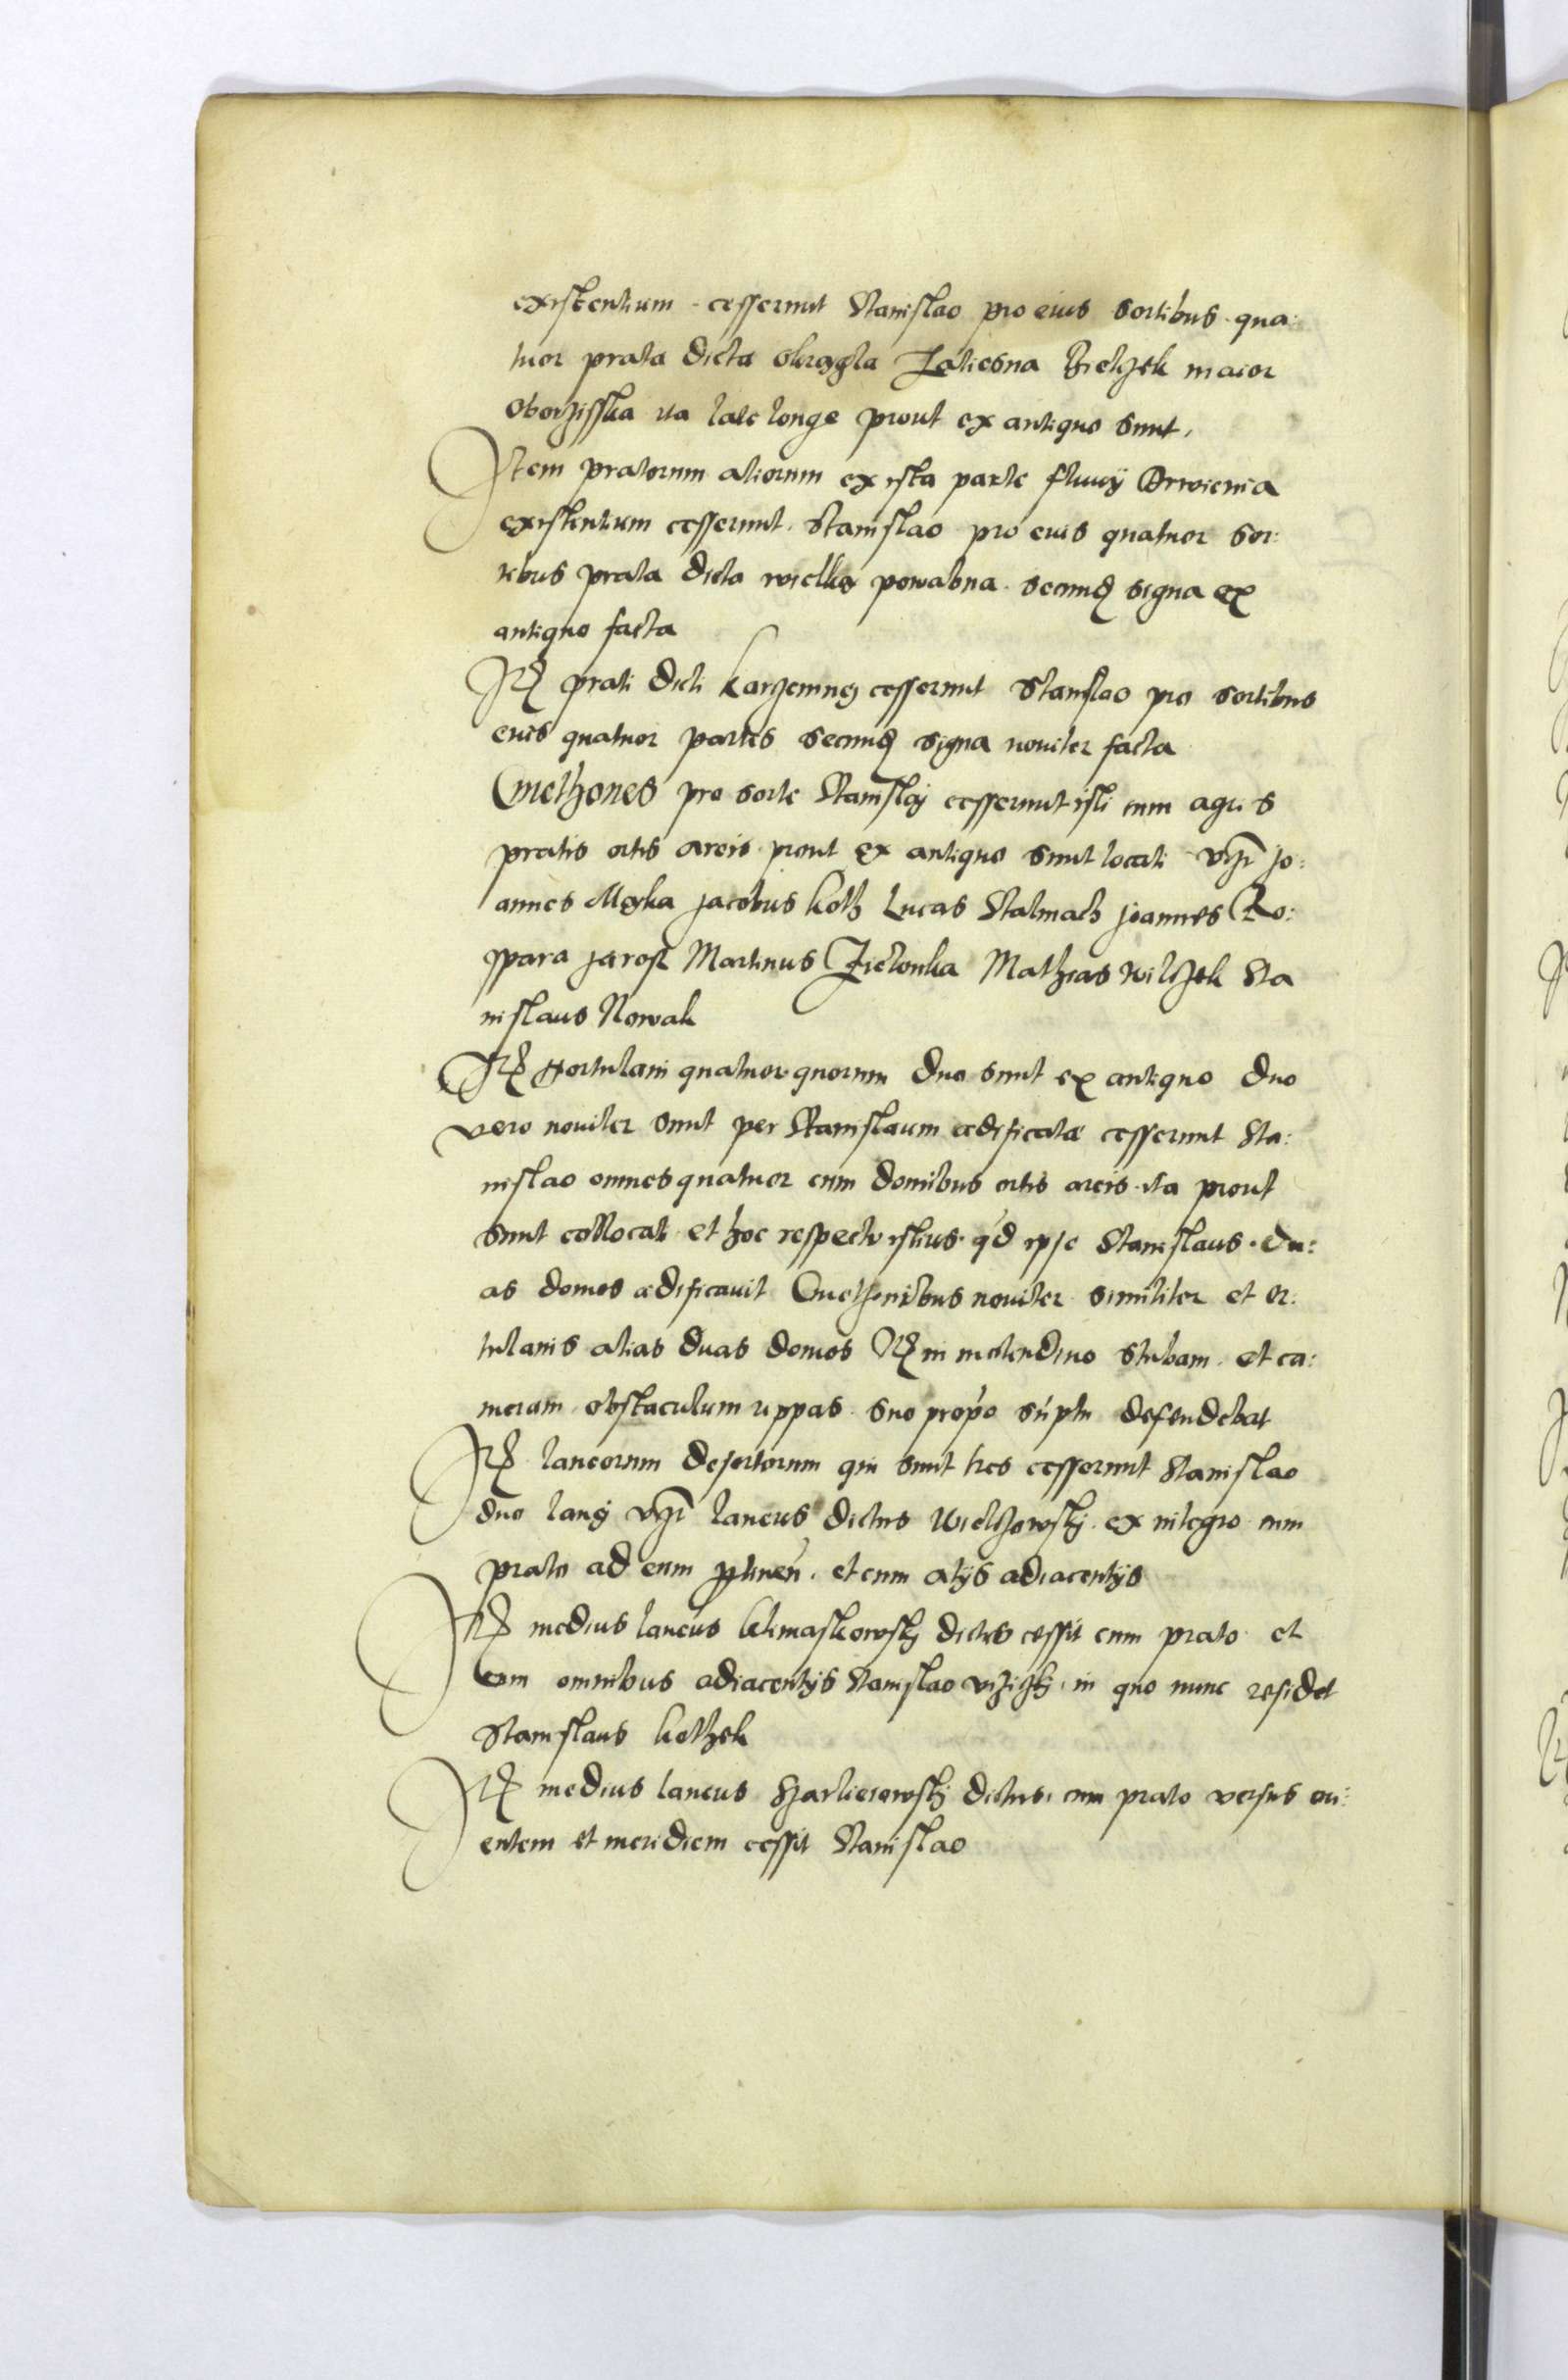 existentium cesserunt Stanislao pro eius sortibus qua:
tuor prata dicta okragla Zaliesna Bielczek maior
oborzisska ita late longe prout ex antiquo sunt.
Item pratorum aliorum ex ista parte fluvij Drwienia
existentium cesserunt Stanislao pro eius quatuor sor:
tibus prata dicta wielka powabna secund signa ex
antiquo facta
Itē prati dicti karzemneg cesserunt Stanislao pro sortibus
eius quatuor partes secund signa noviter facta
Cmethones pro sorte Stanislaj cesserunt isti cum agris
pratis ortis areis prout ex antiquo sunt locati vz Jo:
annes Meyka Jacobus koth Lucas Stalmach Joannes Ro:
spara Jarosz Martinus Zielonka Mathias wilczek Sta
nislaus Nowak
Itē Hortulani quatuor quorum duo sunt ex antiquo duo
vero noviter sunt per Stanislaum ædificatæ cesserunt Sta:
nislao omnes quatuor cum domibus ortis areis ita prout
sunt collocati et hoc respectu istius qd ipse Stanislaus du:
as domos ædificavit Cmethonibus noviter similiter et or:
tulanis alias duas domos Itē in molendino stubam et ca:
meram obstaculum rippas suo propo suptu defendebat
Itē laneorum desertorum qui sunt tres cesserunt Stanislao
duo lanej vz laneus dictus Wielczowskj ex integro cum
prato ad eum ptinen et cum alijs adiacentijs
Itē medius laneus klimaskowskj dictus cessit cum prato et
cum omnibus adiacentijs Stanislao in quo nunc residet
Stanislaus kothek
Itē medius laneus dictus cum prato versus ori:
entem et meridiem cessit Stanislao